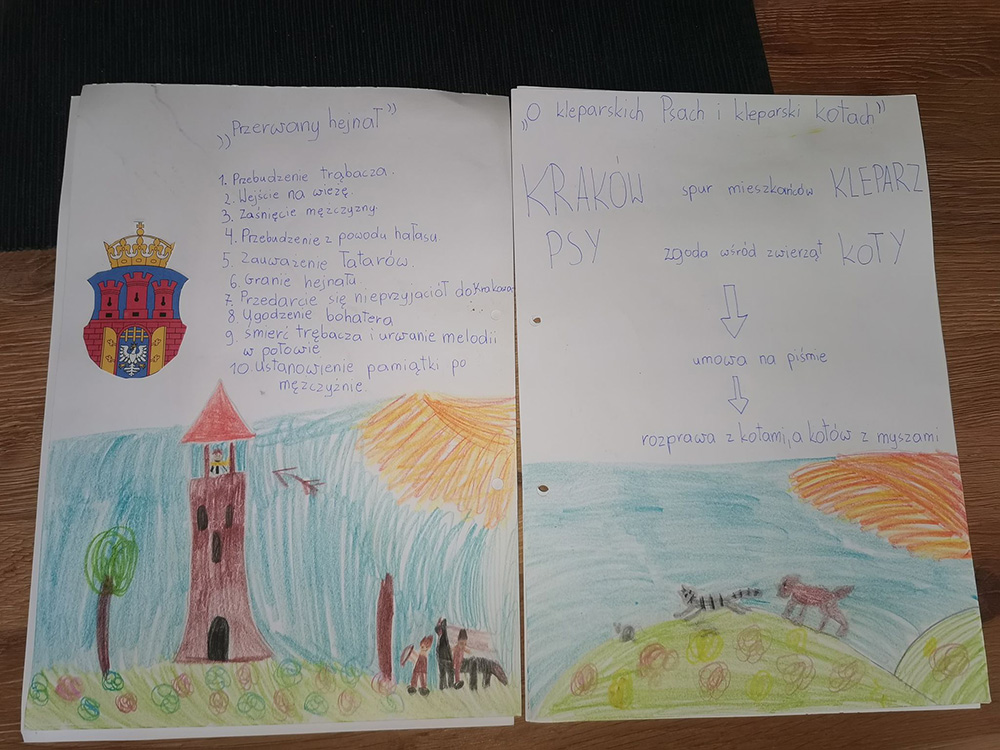 „Przerwany hejnał”
1. Przebudzenie trąbacza.
2. Wejście na wieżę.
3. Zaśnięcie mężczyzny.
4. Przebudzenie z powodu hałasu
5. Zauważenie Tatarów.
6. Granie hejnału.
7. Przedarcie się nieprzyjaciół do Krakowa
8. Ugodzenie bohatera
9. Śmierć trębacza i urwanie melodii
w połowie
10. Ustanowienie pamiątki po
mężczyźnie.
„O kleparskich Psach i kleparski kotach”
KRAKÓW spur mieszkańców KLEPARZ
PSY zgoda wśród zwierząt KOTY
umowa na piśmie
rozprawa z kotami, a kotów z myszami